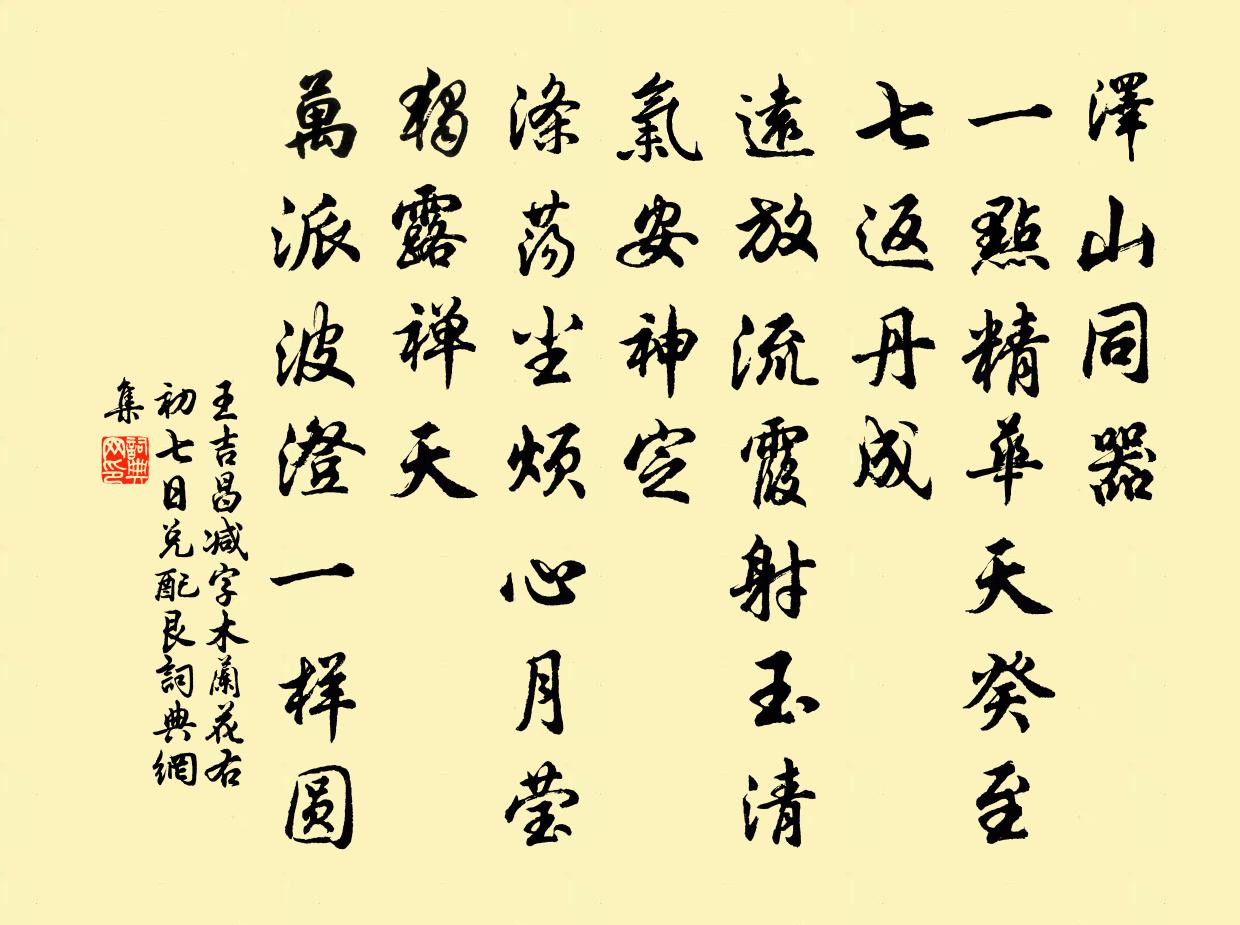 澤山同器
一點精華天癸至
七返丹成
遠放流霞射玉清
氣安神定
滌蕩尘煩心月莹
獨露禅天
萬派波澄一样圆
王吉昌减字木蘭花右
初七日兑配艮詞典網
集
詞典網印